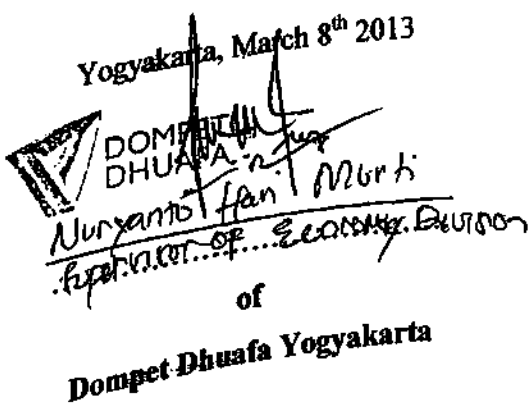 Yogyakarta, March 8th 2013
DOMPET
DHUAFA
Nuryanto Hari Murti
Supervisor of Economic Division
of
Dompet Dhuafa Yogyakarta